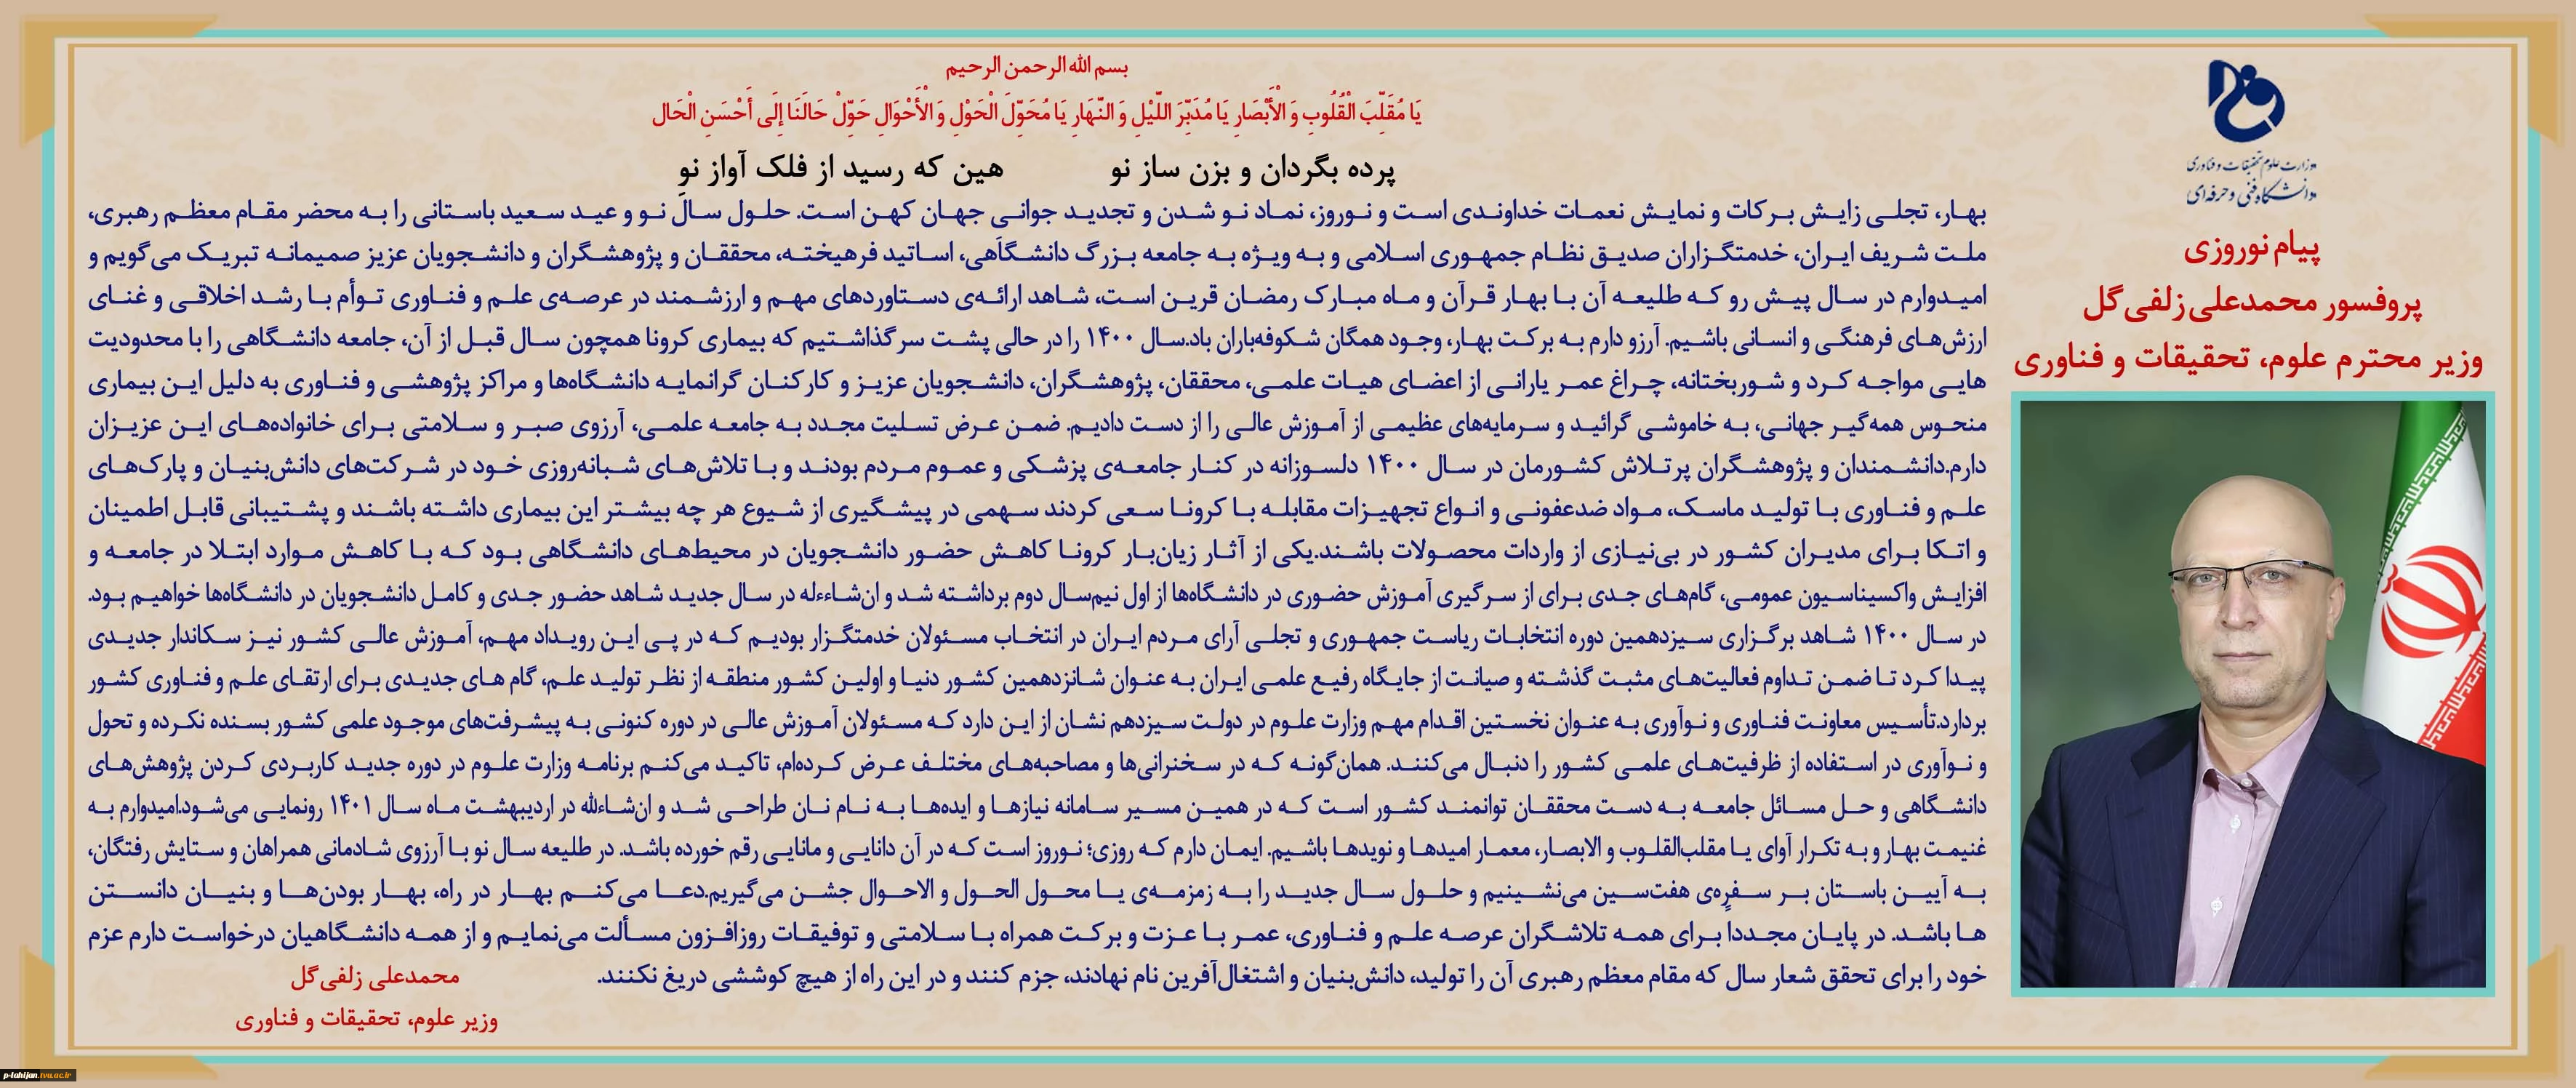 وزارت علوم تحقیقات و فناوری
دانشگاه فنی و حرفه‌ای
پیام نوروزی
پروفسور محمدعلی زلفی‌گل
وزیر محترم علوم، تحقیقات و فناوری
بسم الله الرحمن الرحیم
يَا مُقَلِّبَ الْقُلُوبِ وَ الْأَبْصَارِ يَا مُدَبِّرَ اللَّيْلِ وَ النَّهَارِ يَا مُحَوِّلَ الْحَوْلِ وَ الْأَحْوَالِ حَوِّلْ حَالَنَا إِلَى أَحْسَنِ الْحَالِ
پرده بگردان و بزن ساز نو هین که رسید از فلک آواز نو
بهار، تجلی زایش برکات و نمایش نعمات خداوندی است و نوروز، نماد نو شدن و تجدید جوانی جهان کهن است. حلول سال نو و عید سعید باستانی را به محضر مقام معظم رهبری،
ملت شریف ایران، خدمتگزاران صدیق نظام جمهوری اسلامی و به ویژه به جامعه بزرگ دانشگاهی، اساتید فرهیخته، محققان و پژوهشگران و دانشجویان عزیز صمیمانه تبریک می‌گویم و
امیدوارم در سال پیش رو که طلیعه آن با بهار قرآن و ماه مبارک رمضان قرین است، شاهد ارائه‌ی دستاوردهای مهم و ارزشمند در عرصه‌ی علم و فناوری توأم با رشد اخلاقی و غنای
ارزش‌های فرهنگی و انسانی باشیم. آرزو دارم به برکت بهار، وجود همگان شکوفه‌باران باد.سال ۱۴۰۰ را در حالی پشت سر گذاشتیم که بیماری کرونا همچون سال قبل از آن، جامعه دانشگاهی را با محدودیت
هایی مواجه کرد و شوربختانه، چراغ عمر یارانی از اعضای هیات علمی، محققان، پژوهشگران، دانشجویان عزیز و کارکنان گرانمایه دانشگاه‌ها و مراکز پژوهشی و فناوری به دلیل این بیماری
منحوس همه‌گیر جهانی، به خاموشی گرائید و سرمایه‌های عظیمی از آموزش عالی را از دست دادیم. ضمن عرض تسلیت مجدد به جامعه علمی، آرزوی صبر و سلامتی برای خانواده‌های این عزیزان
دارم.دانشمندان و پژوهشگران پرتلاش کشورمان در سال ۱۴۰۰ دلسوزانه در کنار جامعه‌ی پزشکی و عموم مردم بودند و با تلاش‌های شبانه‌روزی خود در شرکت‌های دانش‌بنیان و پارک‌های
علم و فناوری با تولید ماسک، مواد ضدعفونی و انواع تجهیزات مقابله با کرونا سعی کردند سهمی در پیشگیری از شیوع هر چه بیشتر این بیماری داشته باشند و پشتیبانی قابل اطمینان
و اتکا برای مدیران کشور در بی‌نیازی از واردات محصولات باشند.یکی از آثار زیان‌بار کرونا کاهش حضور دانشجویان در محیط‌های دانشگاهی بود که با کاهش موارد ابتلا در جامعه و
افزایش واکسیناسیون عمومی، گام‌های جدی برای از سرگیری آموزش حضوری در دانشگاه‌ها از اول نیم‌سال دوم برداشته شد و ان‌شاءءله در سال جدید شاهد حضور جدی و کامل دانشجویان در دانشگاه‌ها خواهیم بود.
در سال ۱۴۰۰ شاهد برگزاری سیزدهمین دوره انتخابات ریاست جمهوری و تجلی آرای مردم ایران در انتخاب مسئولان خدمتگزار بودیم که در پی این رویداد مهم، آموزش عالی کشور نیز سکاندار جدیدی
پیدا کرد تا ضمن تداوم فعالیت‌های مثبت گذشته و صیانت از جایگاه رفیع علمی ایران به عنوان شانزدهمین کشور دنیا و اولین کشور منطقه از نظر تولید علم، گام های جدیدی برای ارتقای علم و فناوری کشور
بردارد.تأسیس معاونت فناوری و نوآوری به عنوان نخستین اقدام مهم وزارت علوم در دولت سیزدهم نشان از این دارد که مسئولان آموزش عالی در دوره کنونی به پیشرفت‌های موجود علمی کشور بسنده نکرده و تحول
و نوآوری در استفاده از ظرفیت‌های علمی کشور را دنبال می‌کنند. همان‌گونه که در سخنرانی‌ها و مصاحبه‌های مختلف عرض کرده‌ام، تاکید می‌کنم برنامه وزارت علوم در دوره جدید کاربردی کردن پژوهش‌های
دانشگاهی و حل مسائل جامعه به دست محققان توانمند کشور است که در همین مسیر سامانه نیازها و ایده‌ها به نام نان طراحی شد و ان‌شاءالله در اردیبهشت ماه سال ۱۴۰۱ رونمایی می‌شود.امیدوارم به
غنیمت بهار و به تکرار آوای یا مقلب‌القلوب و الابصار، معمار امیدها و نویدها باشیم. ایمان دارم که روزی؛ نوروز است که در آن دانایی و مانایی رقم خورده باشد. در طلیعه سال نو با آرزوی شادمانی همراهان و ستایش رفتگان،
به آیین باستان بر سفره‌ی هفت‌سین می‌نشینیم و حلول سال جدید را به زمزمه‌ی یا محول الحول و الاحوال جشن می‌گیریم.دعا می‌کنم بهار در راه، بهار بودن‌ها و بنیان دانستن
ها باشد. در پایان مجددا برای همه تلاشگران عرصه علم و فناوری، عمر با عزت و برکت همراه با سلامتی و توفیقات روزافزون مسألت می‌نمایم و از همه دانشگاهیان درخواست دارم عزم
خود را برای تحقق شعار سال که مقام معظم رهبری آن را تولید، دانش‌بنیان و اشتغال‌آفرین نام نهادند، جزم کنند و در این راه از هیچ کوششی دریغ نکنند.
محمدعلی زلفی‌گل
وزیر علوم، تحقیقات و فناوری
p-lahijan.tvu.ac.ir